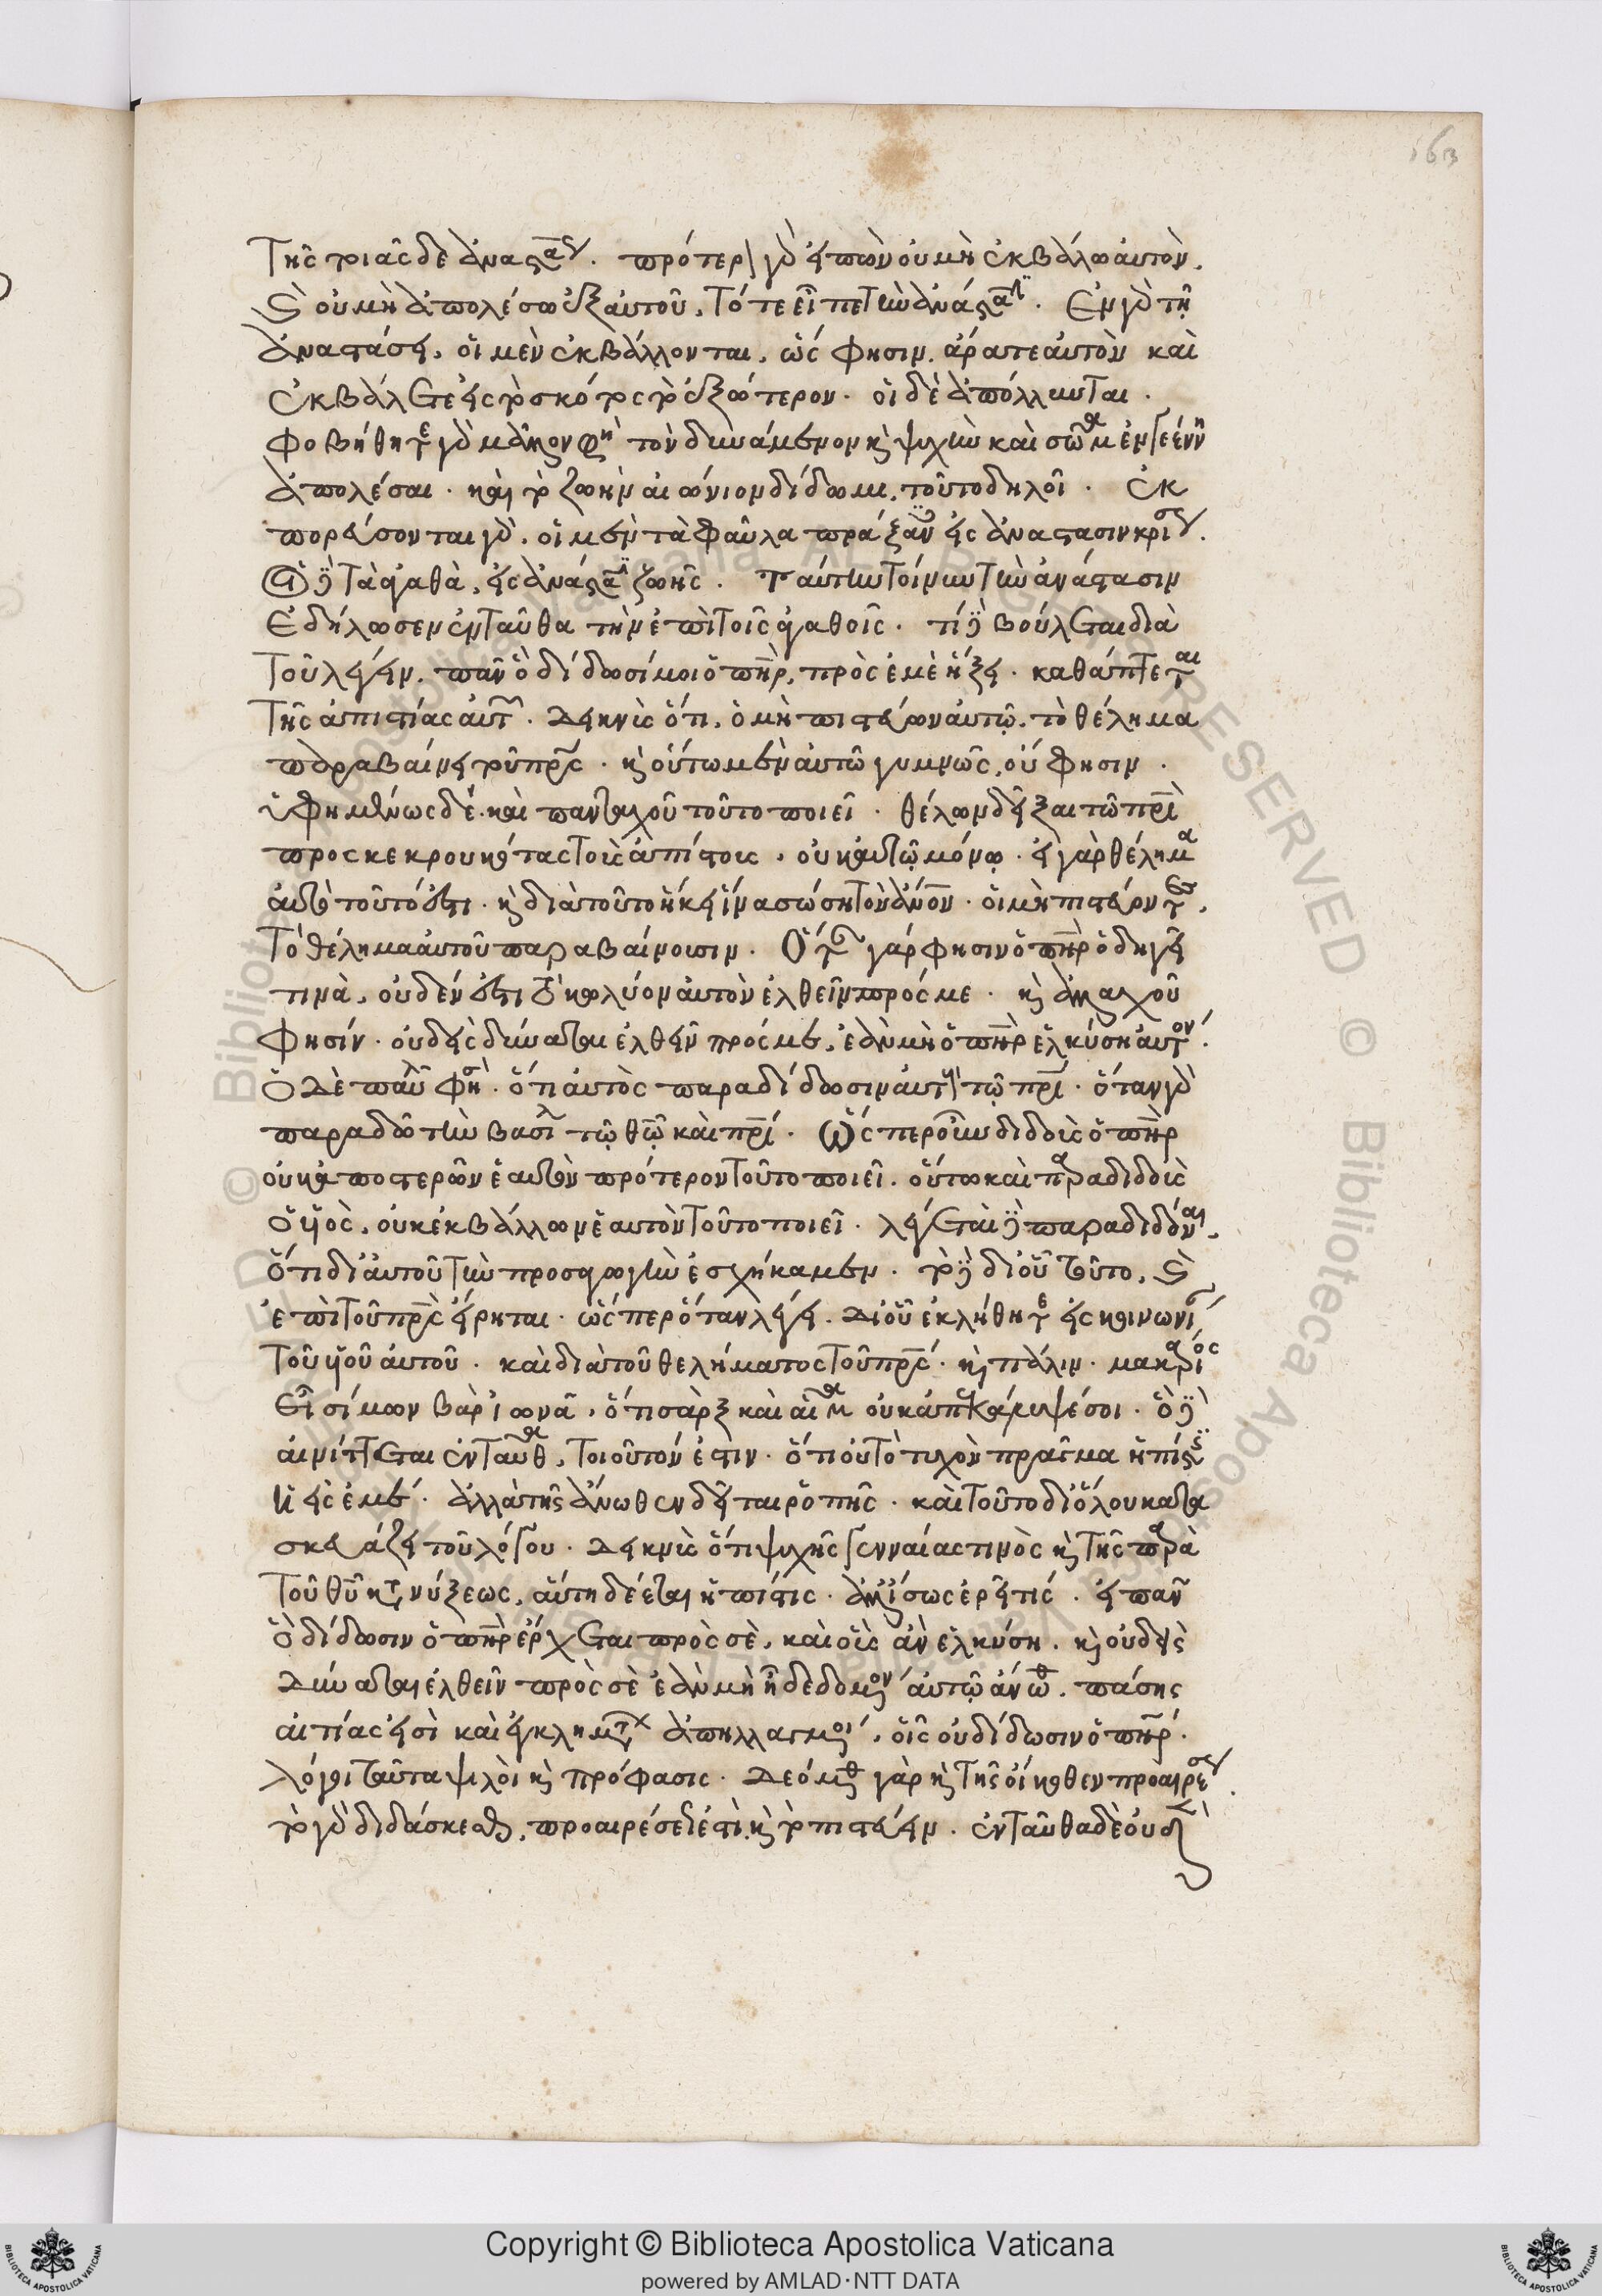 τῆς τοιᾶσδε ἀναστάσεως. πρότερον γὰρ εἰπὼν οὐ μὴ ἐκβάλω αὐτὸν,
καὶ οὐ μὴ ἀπολέσω ἐξ αὐτοῦ, τότε εἶπε τὴν ἀνάστασιν. Ἐν γὰρ τῇ
ἀναστάσει, οἱ μὲν ἐκβάλλονται, ὥς φησιν. ἄρατε αὐτὸν καὶ
ἐκβάλετε εἰς τὸ σκότος τὸ ἐξώτερον. οἱ δὲ ἀπόλλυνται.
φοβήθητε γὰρ μᾶλλον φησὶ τὸν δυνάμενον καὶ ψυχὴν καὶ σῶμα ἐν γεέννῃ
ἀπολέσαι. καὶ τὸ ζωὴν αἰώνιον δίδωμι, τοῦτο δηλοῖ. Ἐκ
πορεύσονται γὰρ, οἱ μὲν τὰ φαῦλα πράξαντες εἰς ἀνάστασιν κρίσεως.
οἱ δὲ τὰ ἀγαθὰ, εἰς ἀνάστασιν ζωῆς. Ταύτην τοίνυν τὴν ἀνάστασιν
ἐδήλωσεν ἐνταῦθα τὴν ἐπὶ τοῖς ἀγαθοῖς. τί δὲ βούλεται διὰ
τοῦ λέγειν. πᾶν ὃ δίδωσί μοι ὁ πὴρ, πρὸς ἐμὲ ἥξει. καθάπτεται
τῆς ἀπιστίας αὐτῶν. Δεικνὺς ὅτι, ὁ μὴ πιστεύων αὐτῷ, τὸ θέλημα
παραβαίνει τοῦ πρς. καὶ οὕτω μὲν αὐτὸ γυμνῶς, οὔ φησιν.
ὑφημένως δέ. καὶ πανταχοῦ τοῦτο ποιεῖ. θέλων δεῖξαι τῷ πρὶ
προσκεκρουκότας τοὺς ἀπίστους, οὐκ αὐτῷ μόνῳ. εἰ γὰρ θέλημα
αὐτοῦ τοῦτό ἐστι. καὶ διὰ τοῦτο ἧκεν ἵνα σώσῃ τὸν ἄνον. οἱ μὴ πιστεύοντες,
τὸ θέλημα αὐτοῦ παραβαίνουσιν. Ὅταν γάρ φησιν ὁ πὴρ ὁδηγεῖ
τινὰ, οὐδέν ἐστι τὸ κωλύον αὐτὸν ἐλθεῖν πρός με. καὶ ἀλλαχοῦ
φησίν. οὐδεὶς δύναται ἐλθεῖν πρός με, ἐὰν μὴ ὁ πὴρ ἑλκύσῃ αὐτόν.
Ὁ δὲ παῦλός φησι. ὅτι αὐτὸς παραδίδωσιν αὐτὴν τῷ πρὶ. ὅταν γὰρ
παραδῷ τὴν βασιλείαν τῷ θῷ καὶ πρὶ. Ὥσπερ οὖν διδοὺς ὁ πὴρ
οὐκ ἀποστερῶν ἑαυτὸν πρότερον τοῦτο ποιεῖ. οὕτω καὶ παραδιδοὺς
ὁ υἱὸς, οὐκ ἐκβάλλων ἑαυτὸν τοῦτο ποιεῖ. λέγεται δὲ παραδιδόναι,
ὅτι δι' αὐτοῦ τὴν προσαγωγὴν ἐσχήκαμεν. τὸ δὲ δι' οὗ τοῦτο, καὶ
ἐπὶ τοῦ πρς εἴρηται. ὥσπερ ὅταν λέγῃ. Δι' οὗ ἐκλήθητε εἰς κοινωνίαν
τοῦ υἱοῦ αὐτοῦ. καὶ διὰ τοῦ θελήματος τοῦ πρς. καὶ πάλιν. μακάριος
εἶ σίμων βὰρ ἰωνᾶ, ὅτι σὰρξ καὶ αἷμα οὐκ ἀπεκάλυψέ σοι. ὃ δὲ
αἰνίττεται ἐνταῦθα, τοιοῦτόν ἐστιν. ὅτι οὐ τὸ τυχὸν πρᾶγμα ἡ πίστις
ἡ εἰς ἐμέ. ἀλλὰ τῆς ἄνωθεν δεῖται ῥοπῆς. καὶ τοῦτο δι' ὅλου κατα
σκευάζει τοῦ λόγου. Δεικνὺς ὅτι ψυχῆς γενναίας τινὸς καὶ τῆς παρὰ
τοῦ θῦ κατανύξεως, αὕτη δέεται ἡ πίστις. ἀλλ' ἴσως ἐρεῖ τίς. εἰ πᾶν
ὃ δίδωσιν ὁ πὴρ ἔρχεται πρὸς σὲ, καὶ οὓς ἂν ἑλκύσῃ. καὶ οὐδεὶς
δύναται ἐλθεῖν πρὸς σὲ ἐὰν μὴ ᾖ δεδομένον αὐτῷ ἄνωθεν. πάσης
αἰτίας εἰσὶ καὶ ἐγκλημάτων ἀπηλλαγμένοι, οἷς οὐ δίδωσιν ὁ πὴρ.
λόγοι ταῦτα ψιλοὶ καὶ πρόφασις. Δεόμεθα γὰρ καὶ τῆς οἴκοθεν προαιρέσεως.
τὸ γὰρ διδάσκεσθαι, προαιρέσεώς ἐστὶ. καὶ τὸ πιστεύειν. ἐνταῦθα δὲ οὐδὲν